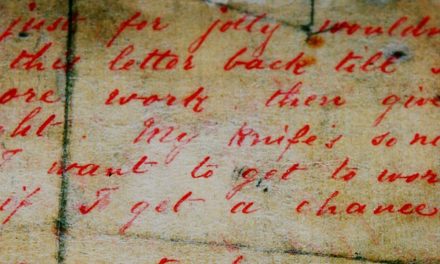 just for jolly wouldn
this letter back till
ore work. then give
ght. My knifes so ni
I want to get to wor
if I get a chance